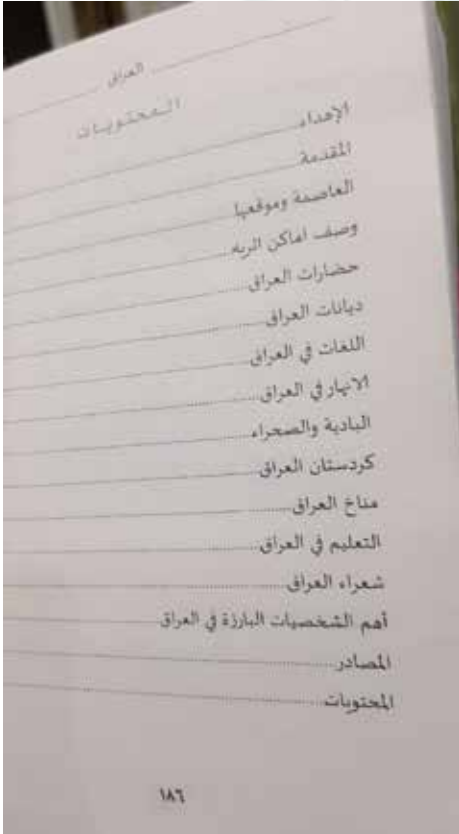 العراق
المحتويات
الإهداء
المقدمة
العاصمة وموقعها
وصف اماكن اثريه
حضارات العراق
ديانات العراق
اللغات في العراق
الانهار في العراق
البادية والصحراء
كردستان العراق
مناخ العراق
التعليم في العراق
شعراء العراق
أهم الشخصيات البارزة في العراق
المصادر
المحتويات
١٨٦